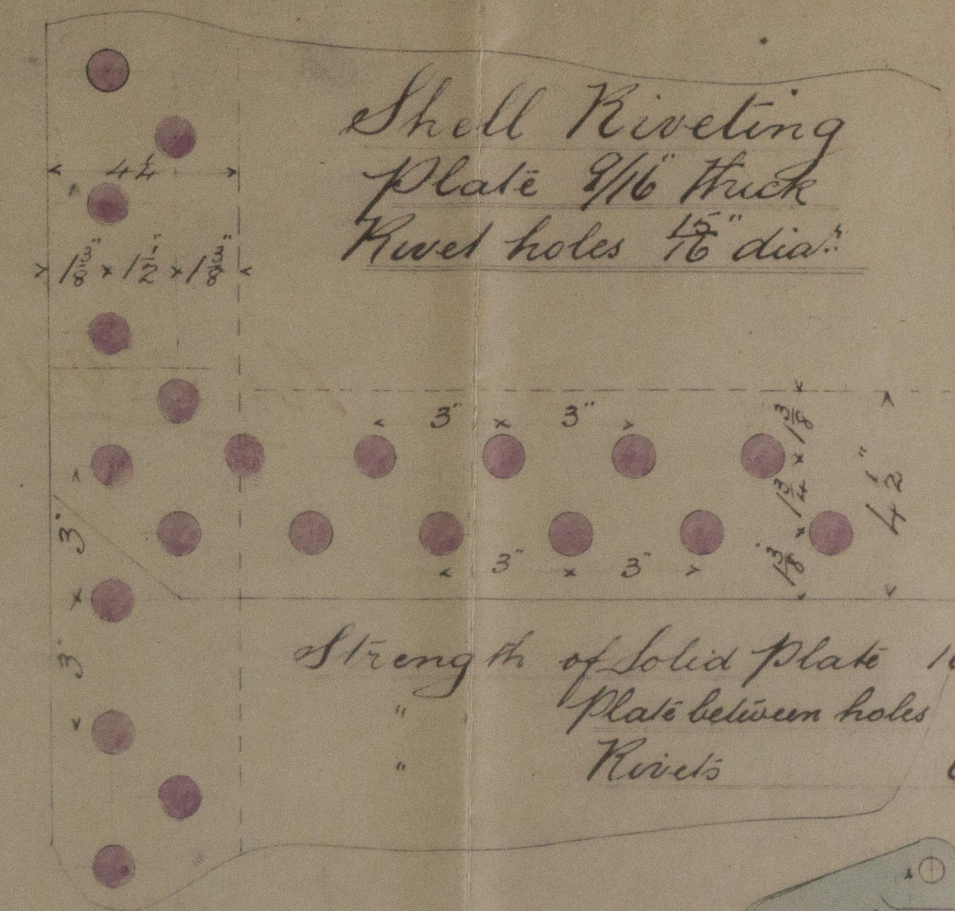 Shell Riveting
Plate 9/16" thick
Rivet holes 15/16" diar.
4¼
1⅜" × 1½" × 1⅜"
3" × 3"
1⅜ × 1¾ × 1⅜
4½"
3" × 3"
3" × 3"
Strength of Solid Plate
" Plate between holes
" Rivets